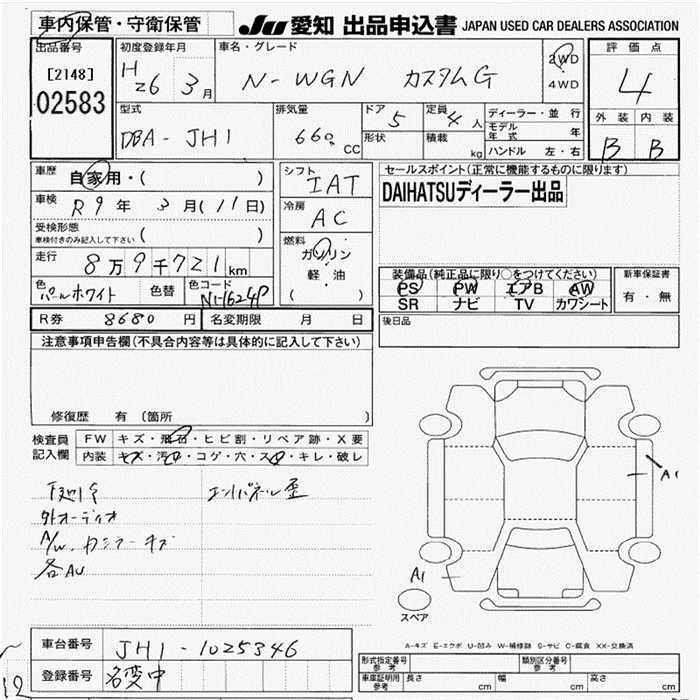 車内保管・守衛保管
JU 愛知 出品申込書 JAPAN USED CAR DEALERS ASSOCIATION
出品番号
[2148]
02583
初度登録年月
H26 3月
車名・グレード
N-WGN カスタムG
2WD
4WD
評価点
4
外装 内装
B B
型式
DBA-JH1
排気量
660 CC
ドア 5
形状
定員 4人
積載 kg
ディーラー・並行
モデル年式 年
ハンドル 左・右
車歴
自家用・( )
車検
R9年 3月(11日)
受検形態
車検付きのみ記入して下さい ( )
走行
8万9千721km
色
パールホワイト
色替
色コード
NH624P
シフト
IAT
冷房
AC
燃料
ガソリン
軽・油
( )
セールスポイント(正常に機能するものに限ります)
DAIHATSUディーラー出品
装備品(純正品に限り○をつけてください)
PS PW エアB AW
SR ナビ TV カワシート
新車保証書
有・無
R券 8680円
名変期限 月 日
後日品
注意事項申告欄(不具合内容等は具体的に記入して下さい)
修復歴 有 (箇所 )
検査員記入欄
FW キズ・飛石・ヒビ割・リペア跡・X要
内装 キズ・汚れ・コゲ・穴・スレ・キレ・破レ
外オーディオ
A/W、カシラーキズ
各AU
エンパネル歪
A1
A1
スペア
A-キズ E-エクボ U-凹み W-補修跡 S-サビ C-腐食 XX-交換済
車台番号 JH1-1025346
登録番号 名変中
12
形式指定番号 参考
類別区分番号 参考
車庫証明用 参考 長さ cm 幅 cm 高さ cm